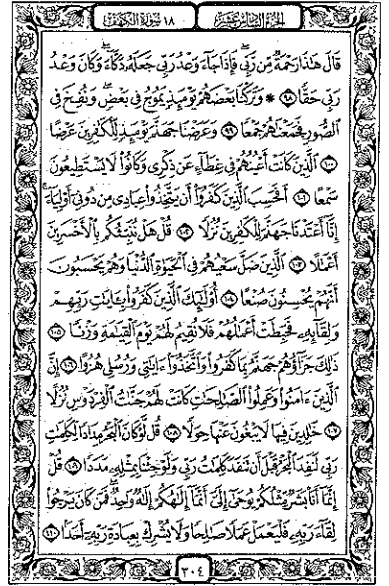 الجزء السادس عشر ١٨ سورة الكهف
قَالَ هَٰذَا رَحْمَةٌ مِّن رَّبِّي فَإِذَا جَاءَ وَعْدُ رَبِّي جَعَلَهُ دَكَّاءَ وَكَانَ وَعْدُ
رَبِّي حَقًّا ٩٨ * وَتَرَكْنَا بَعْضَهُمْ يَوْمَئِذٍ يَمُوجُ فِي بَعْضٍ وَنُفِخَ فِي
الصُّورِ فَجَمَعْنَاهُمْ جَمْعًا ٩٩ وَعَرَضْنَا جَهَنَّمَ يَوْمَئِذٍ لِّلْكَافِرِينَ عَرْضًا
١٠٠ الَّذِينَ كَانَتْ أَعْيُنُهُمْ فِي غِطَاءٍ عَن ذِكْرِي وَكَانُوا لَا يَسْتَطِيعُونَ
سَمْعًا ١٠١ أَفَحَسِبَ الَّذِينَ كَفَرُوا أَن يَتَّخِذُوا عِبَادِي مِن دُونِي أَوْلِيَاءَ
إِنَّا أَعْتَدْنَا جَهَنَّمَ لِلْكَافِرِينَ نُزُلًا ١٠٢ قُلْ هَلْ نُنَبِّئُكُم بِالْأَخْسَرِينَ
أَعْمَالًا ١٠٣ الَّذِينَ ضَلَّ سَعْيُهُمْ فِي الْحَيَاةِ الدُّنْيَا وَهُمْ يَحْسَبُونَ
أَنَّهُمْ يُحْسِنُونَ صُنْعًا ١٠٤ أُولَٰئِكَ الَّذِينَ كَفَرُوا بِآيَاتِ رَبِّهِمْ
وَلِقَائِهِ فَحَبِطَتْ أَعْمَالُهُمْ فَلَا نُقِيمُ لَهُمْ يَوْمَ الْقِيَامَةِ وَزْنًا ١٠٥
ذَٰلِكَ جَزَاؤُهُمْ جَهَنَّمُ بِمَا كَفَرُوا وَاتَّخَذُوا آيَاتِي وَرُسُلِي هُزُوًا ١٠٦ إِنَّ
الَّذِينَ آمَنُوا وَعَمِلُوا الصَّالِحَاتِ كَانَتْ لَهُمْ جَنَّاتُ الْفِرْدَوْسِ نُزُلًا
١٠٧ خَالِدِينَ فِيهَا لَا يَبْغُونَ عَنْهَا حِوَلًا ١٠٨ قُل لَّوْ كَانَ الْبَحْرُ مِدَادًا لِّكَلِمَاتِ
رَبِّي لَنَفِدَ الْبَحْرُ قَبْلَ أَن تَنفَدَ كَلِمَاتُ رَبِّي وَلَوْ جِئْنَا بِمِثْلِهِ مَدَدًا ١٠٩ قُلْ
إِنَّمَا أَنَا بَشَرٌ مِّثْلُكُمْ يُوحَىٰ إِلَيَّ أَنَّمَا إِلَٰهُكُمْ إِلَٰهٌ وَاحِدٌ فَمَن كَانَ يَرْجُو
لِقَاءَ رَبِّهِ فَلْيَعْمَلْ عَمَلًا صَالِحًا وَلَا يُشْرِكْ بِعِبَادَةِ رَبِّهِ أَحَدًا ١١٠
٣٠٤